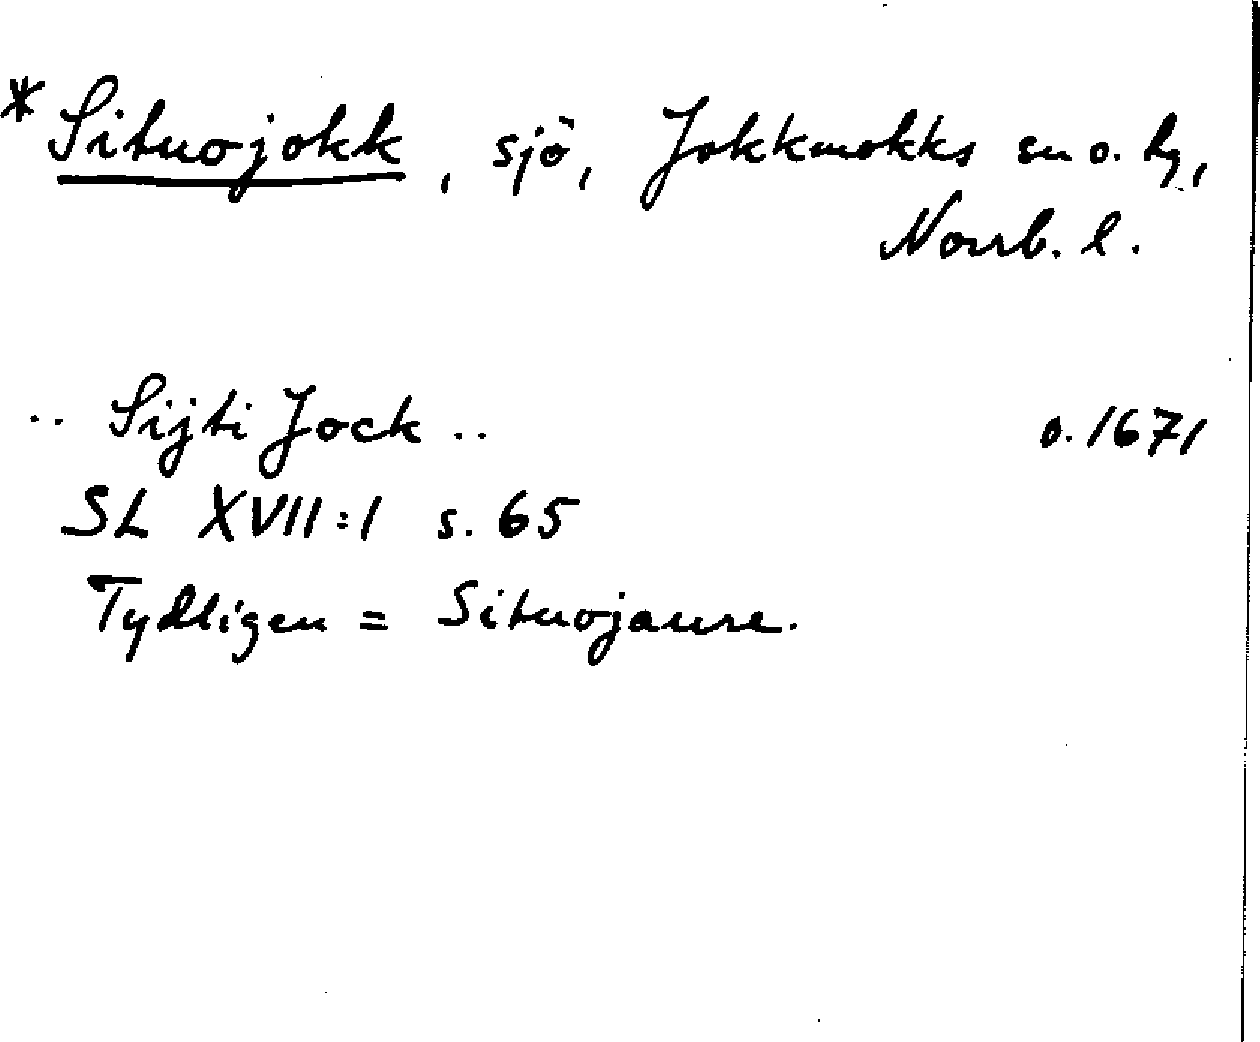 * Situojokk, sjö, Jokkmokks sn o. hg,
Norrb. l.
.. Sijti Jock .. o. 1671
SL XVII:1 s. 65
Tydligen = Situojaure.